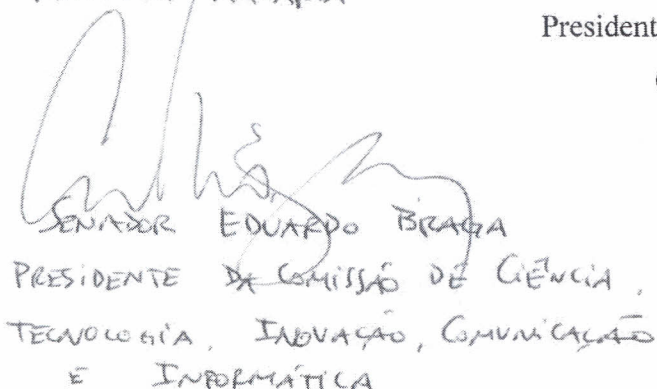 President
SENADOR EDUARDO BRAGA
PRESIDENTE DA COMISSÃO DE CIÊNCIA,
TECNOLOGIA, INOVAÇÃO, COMUNICAÇÃO
E INFORMÁTICA